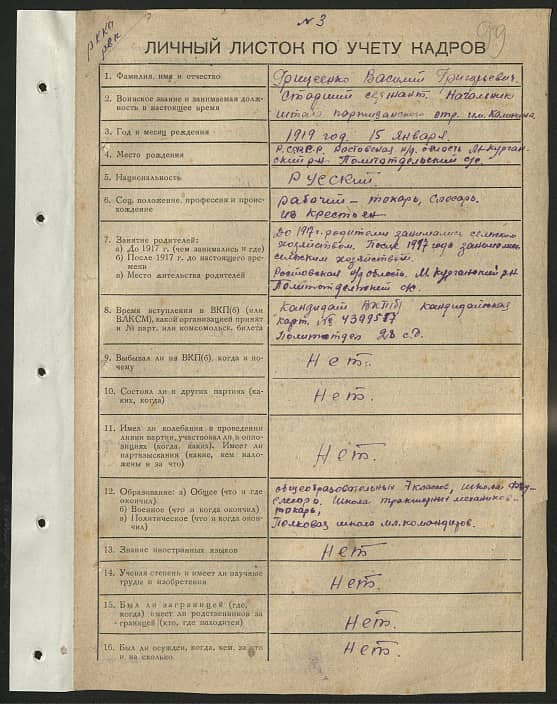 № 3
99
ЛИЧНЫЙ ЛИСТОК ПО УЧЕТУ КАДРОВ
1. Фамилия, имя и отчество
Грищенко Василий Григорьевич.
2. Воинское звание и занимаемая долж-
ность в настоящее время
Старший сержант. Начальник
штаба партизанского отр. им. Калинина.
3. Год и месяц рождения
1919 год. 15 января.
4. Место рождения
Р.С.Ф.С.Р. Ростовская обл. М-Курган-
ский р-н. Политотдельский с/с.
5. Национальность
Русский.
6. Соц. положение, профессия и проис-
хождение
Рабочий – токарь, слесарь.
из крестьян
7. Занятие родителей:
а) До 1917 г. (чем занимались и где)
б) После 1917 до настоящего вре-
мени
в) Место жительства родителей
До 1917 г. родители занимались сельским
хозяйством. После 1917 года занимались
сельским хозяйством.
Ростовская область. М Курганский р-н
Политотдельский с/с.
8. Время вступления в ВКП(б) (или
ВЛКСМ), какой организацией принят
и № парт. или комсомольск. билета
Кандидат ВКП(б) кандидатская
карт. №
Политотдел с.д.
9. Выбывал ли из ВКП(б), когда и по-
чему
Нет.
10. Состоял ли в других партиях (ка-
ких, когда)
Нет.
11. Имел ли колебания в проведении
линии партии, участвовал ли в оппо-
зициях (когда, каких). Имеет ли
партвзыскания (какие, кем нало-
жены и за что)
Нет.
12. Образование: а) Общее (что и где
окончил)
б) Военное (что и когда окончил)
в) Политическое (что и когда окон-
чил)
общеобразовательный 7 классов, школа ФЗУ –
слесаря. Школа тракторных механиков –
токарь,
Полковая школа мл. командиров.
13. Знание иностранных языков
Нет
14. Ученая степень и имеет ли научные
труды и изобретения
Нет.
15. Был ли заграницей (где,
когда) имеет ли родственников за
границей (кто, где находится)
Нет.
16. Был ли осужден, когда, кем, за что
и на сколько
Нет.